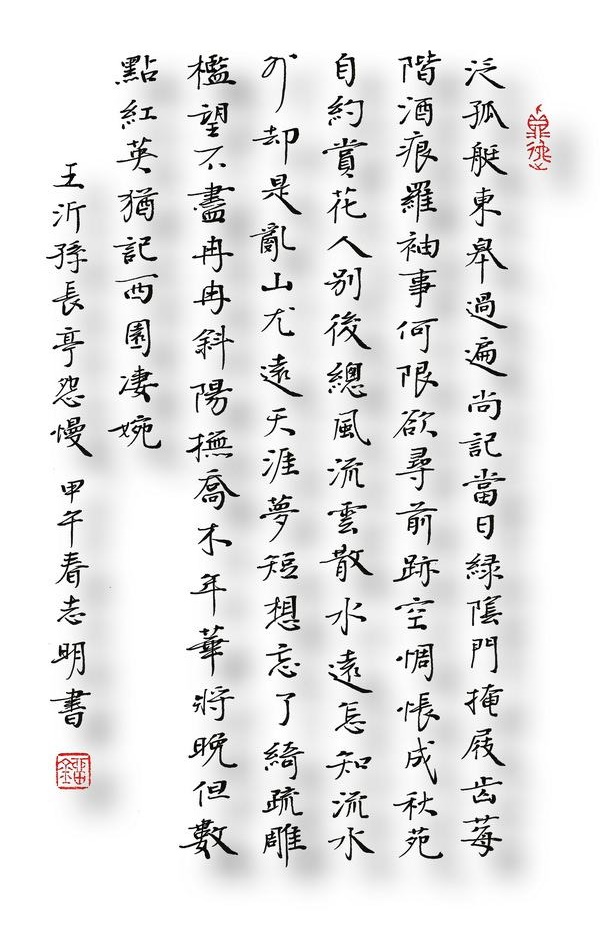 泛孤艇東皋過遍尚記當日綠陰門掩屐齒莓
階酒痕羅袖事何限欲尋前跡空惆悵成秋苑
自約賞花人別後總風流雲散水遠怎知流水
外却是亂山尤遠天涯夢短想忘了綺疏雕
檻望不盡冉冉斜陽撫喬木年華將晚但數
點紅英猶記西園凄婉
王沂孫長亭怨慢 甲午春志明書